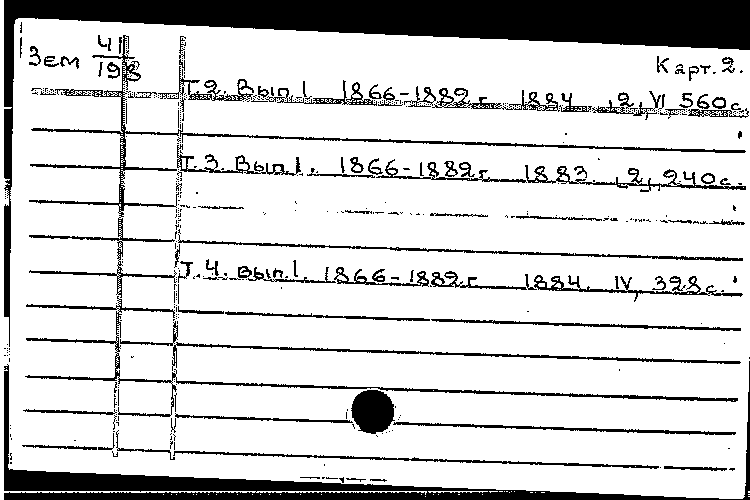 Зем 41/198
Карт. 2.
Т. 2. Вып. 1 1866-1882 г 1884 [2], VI, 560 с.
Т. 3. Вып. 1. 1866-1882 г 1883 [2], 240 с.
Т. 4. Вып. 1. 1866-1882 г 1884. IV, 328 с.